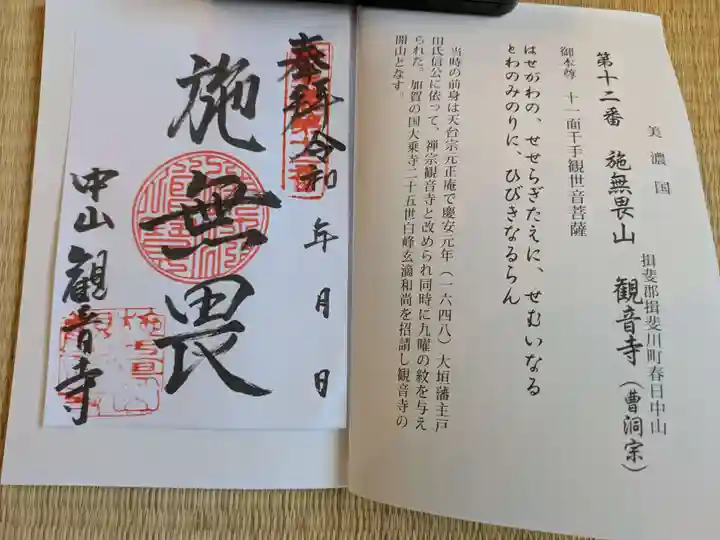 美濃国
揖斐郡揖斐川町春日中山
第十二番 施無畏山 観音寺（曹洞宗）
御本尊 十一面千手観世音菩薩
はせがわの、せせらぎたえに、せむいなる
とわのみのりに、ひびきなるらん
当時の前身は天台宗元正庵で慶安元年（一六四八）大垣藩主戸
田氏信公に依って、禅宗観音寺と改められ同時に九曜の紋を与え
られた。加賀の国大乗寺二十五世白峰玄滴和尚を招請し観音寺の
開山となす。
奉拝 令和 年 月 日
施無畏
中山 観音寺